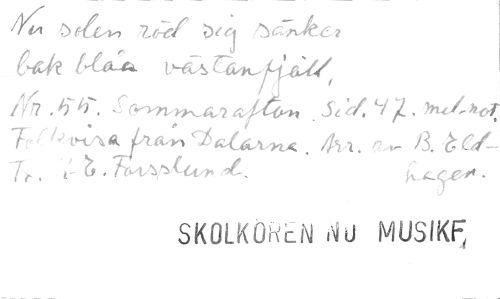 Nu solen röd sig sänker
bak blåa västanfjäll,
Nr. 55. Sommarafton. Sid. 47. mel-not.
Folkvisa från Dalarna. Arr. av B. Eld-
Tr. E. Forsslund. hagen.
SKOLKÖREN NU MUSIKF,